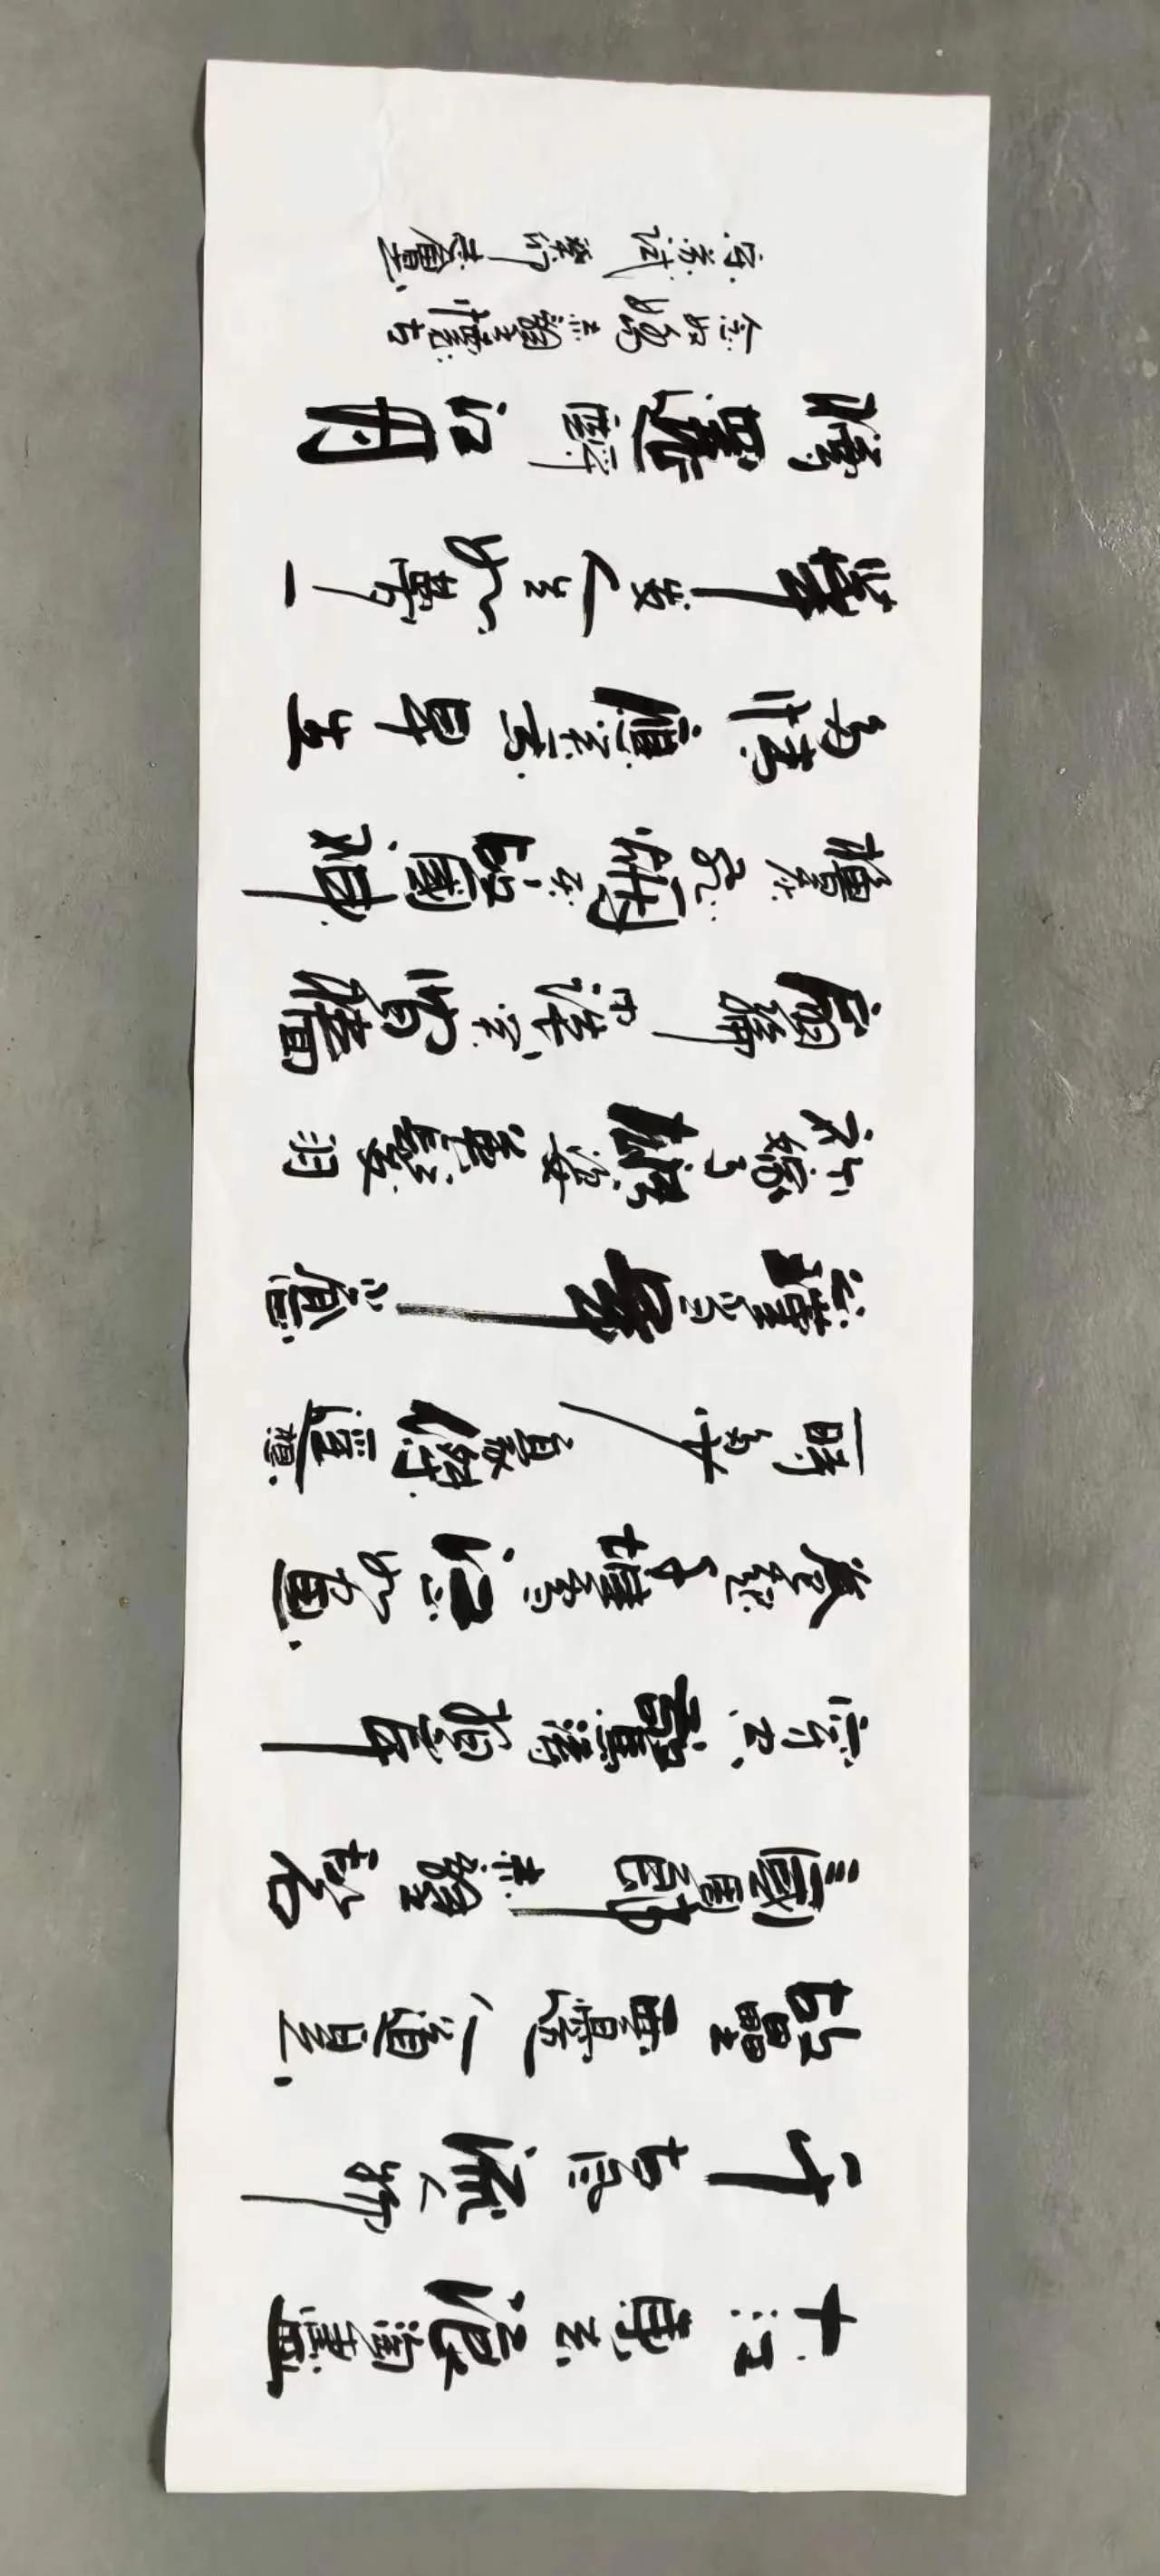 大江東去浪淘盡
千古風流人物
故壘西邊人道是
三國周郎赤壁亂石
穿空驚濤拍岸
卷起千堆雪江山如畫
一時多少豪傑遙想
公瑾當年小
初嫁了雄姿英發羽
扇綸巾談笑間檣
櫓灰飛故國神
多情應笑我早生
華髮人生如夢一
樽還酹江月
念奴嬌赤壁懷古
宋蘇軾 癸卯